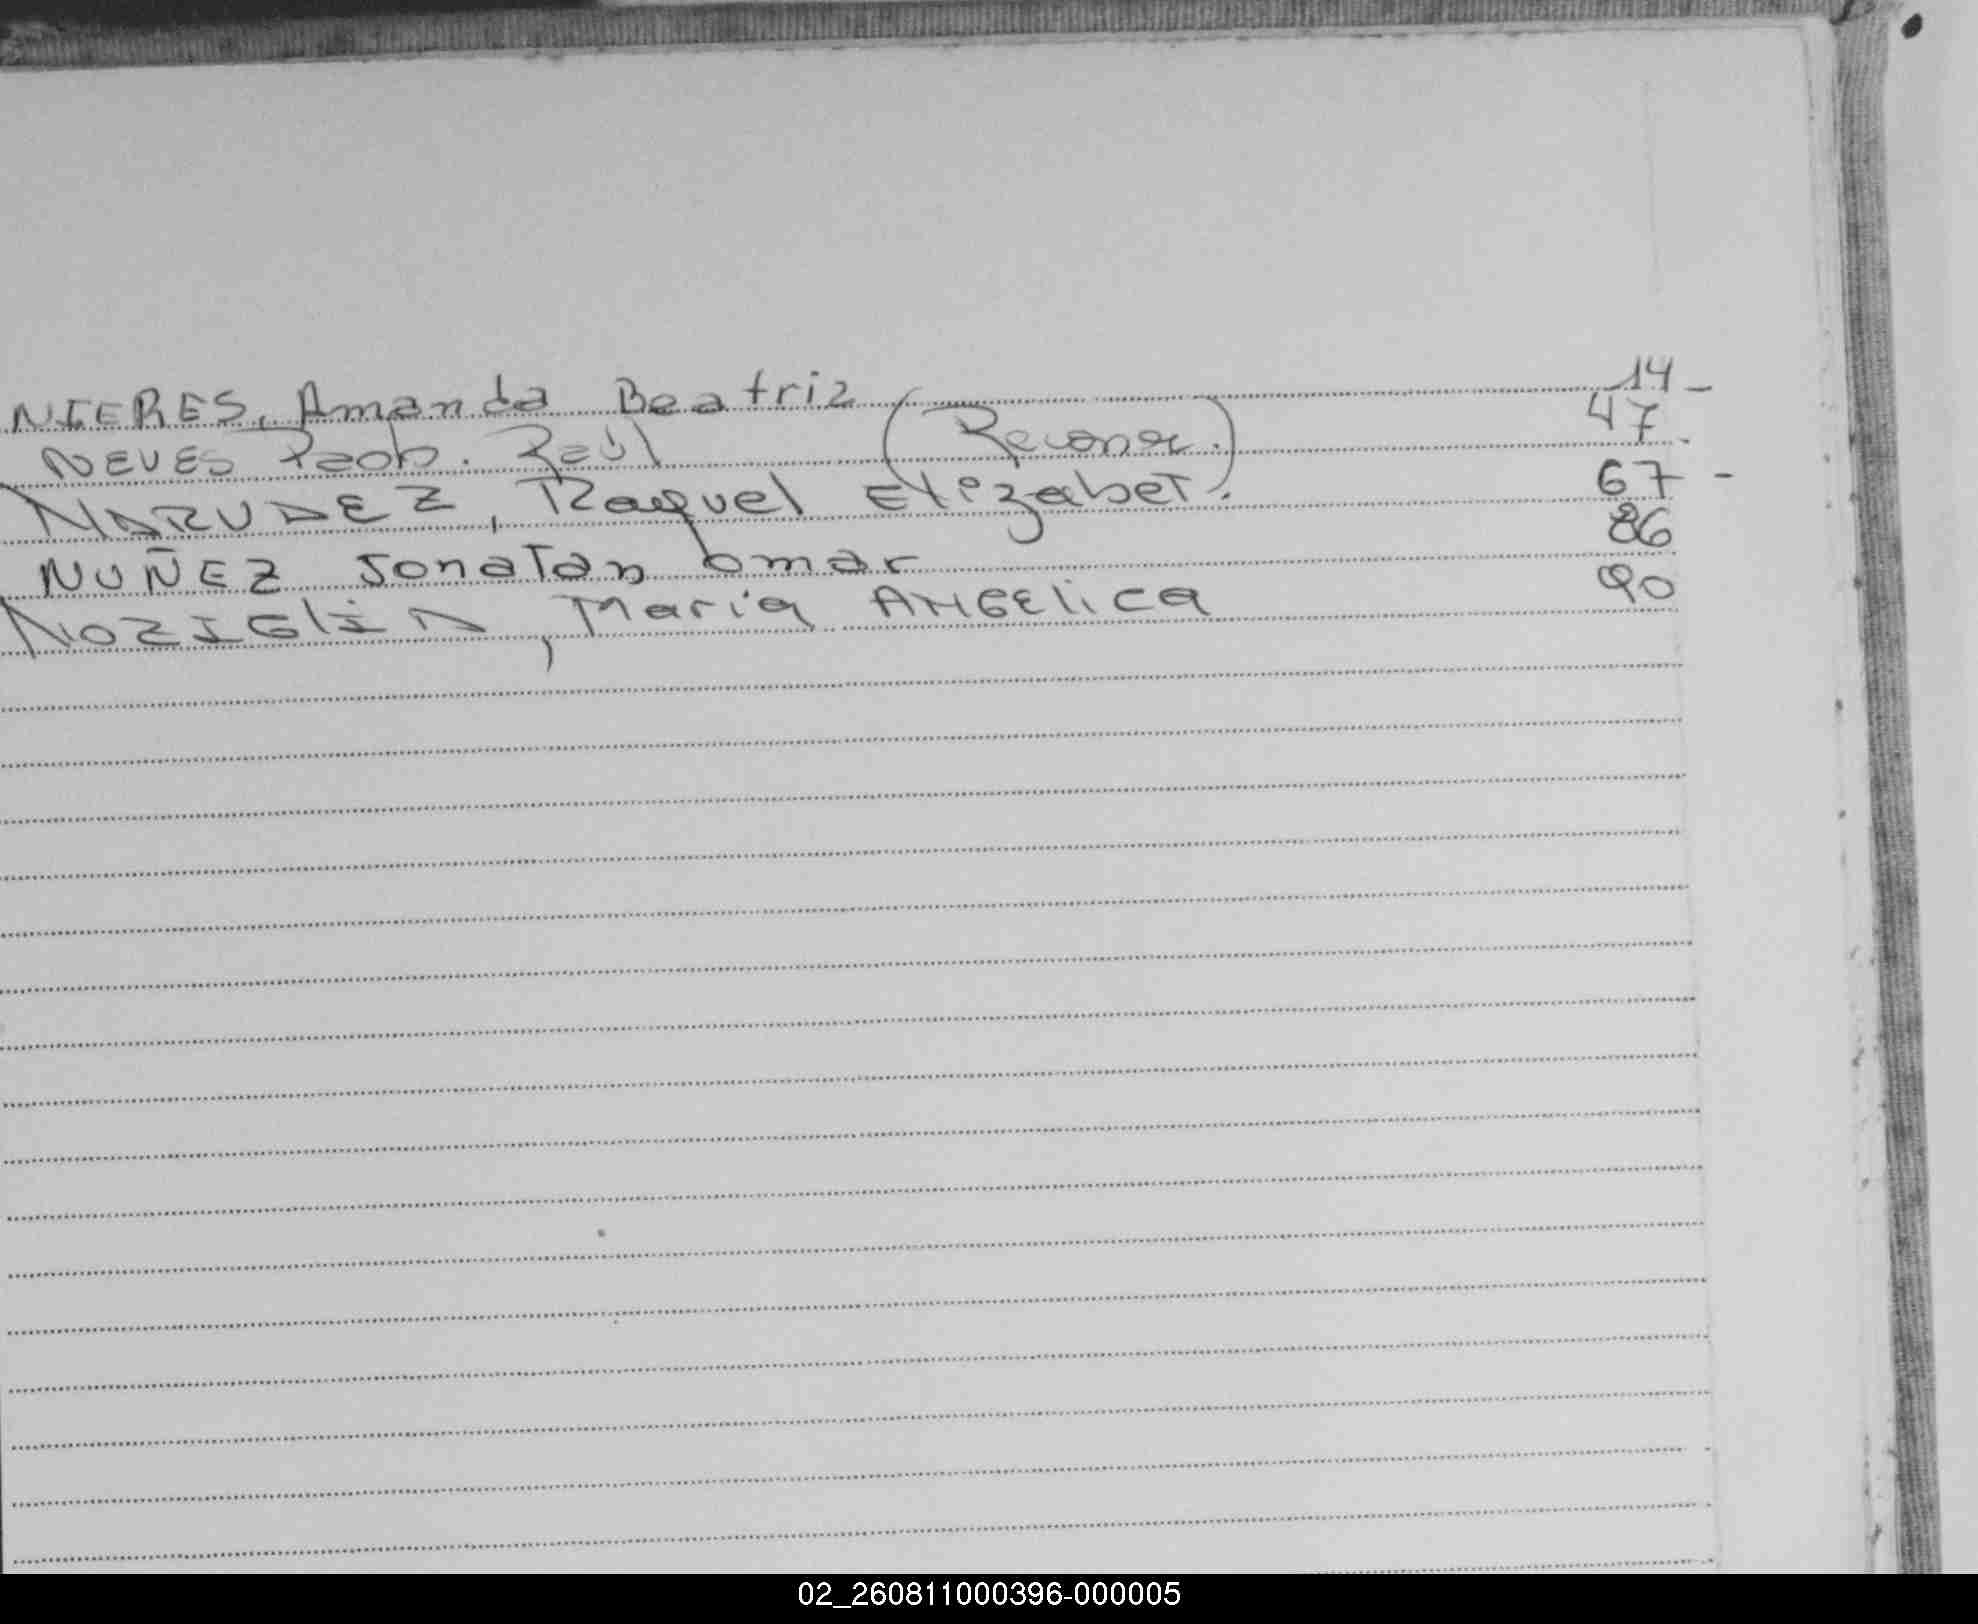 NIERES, Amanda Beatriz 14 -
NEVES Raúl (Reconoc.) 47.
NARUDEZ, Raquel Elizabet. 67 -
NUÑEZ Jonatan Omar 86
NOZIGLIA, Maria ANGElica 90
02_260811000396-000005